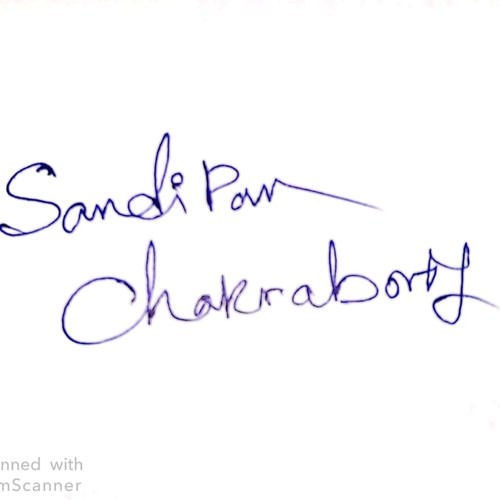 Sandipan
Chakraborty
nned with
mScanner